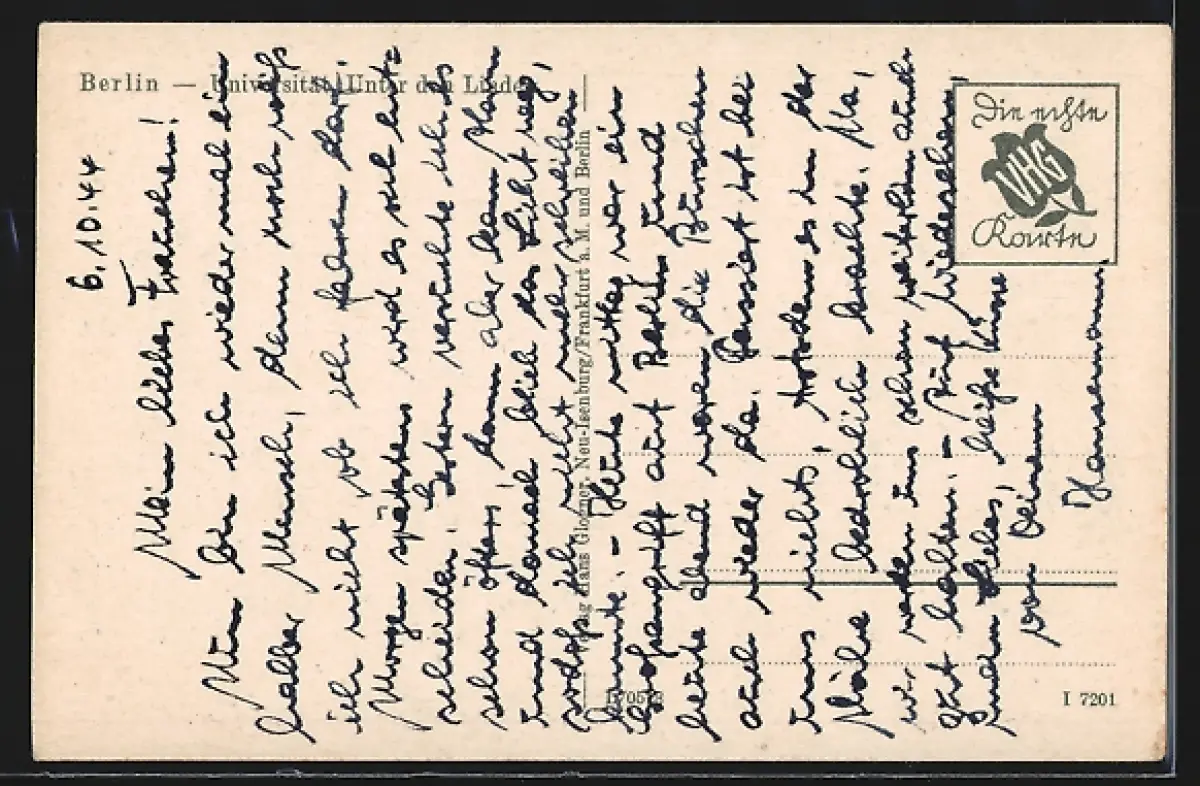 Berlin — Universität, Unter den Linden
Die echte
VHG
Karte
Verlag Hans Glogner, Neu-Isenburg/Frankfurt a. M. und Berlin
I 7201
6.10.44
Mein liebes Frauchen!
Nun bin ich wieder mal ein
halber Mensch, denn noch weiß
ich nicht ob ich fahren darf.
Morgen spätestens wird es sich ent-
scheiden. Gestern versuchte ich es
schon öfters, dann aber kam Alarm
und danach blieb das Licht weg,
sodaß ich nicht mehr schreiben
konnte. – Heute mittag war ein
Großangriff auf Berlin und
heute abend waren die Bürschchen
auch wieder da. Passiert ist bei
uns nichts, trotzdem es in der
Nähe bedrohlich krachte. Na,
wir werden uns schon weiterhin auch
gut halten. – Auf Wiedersehen,
mein Liebes, heiße Küsse
von Deinem
Hansemann.